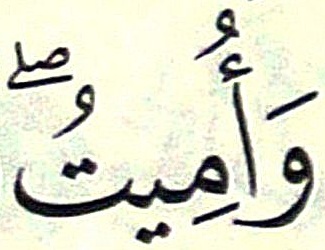 وَأُمِيتُۖ